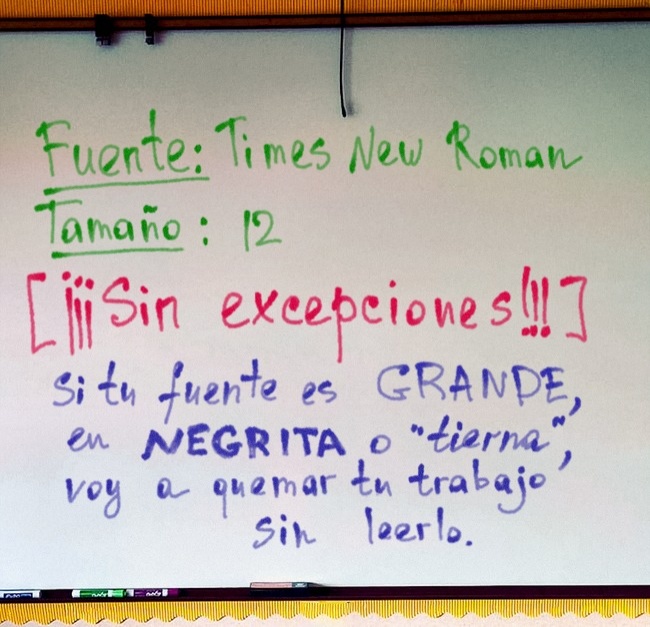 Fuente: Times New Roman
Tamaño: 12
[¡¡¡Sin excepciones!!!]
Si tu fuente es GRANDE,
en NEGRITA o "tierna",
voy a quemar tu trabajo
sin leerlo.